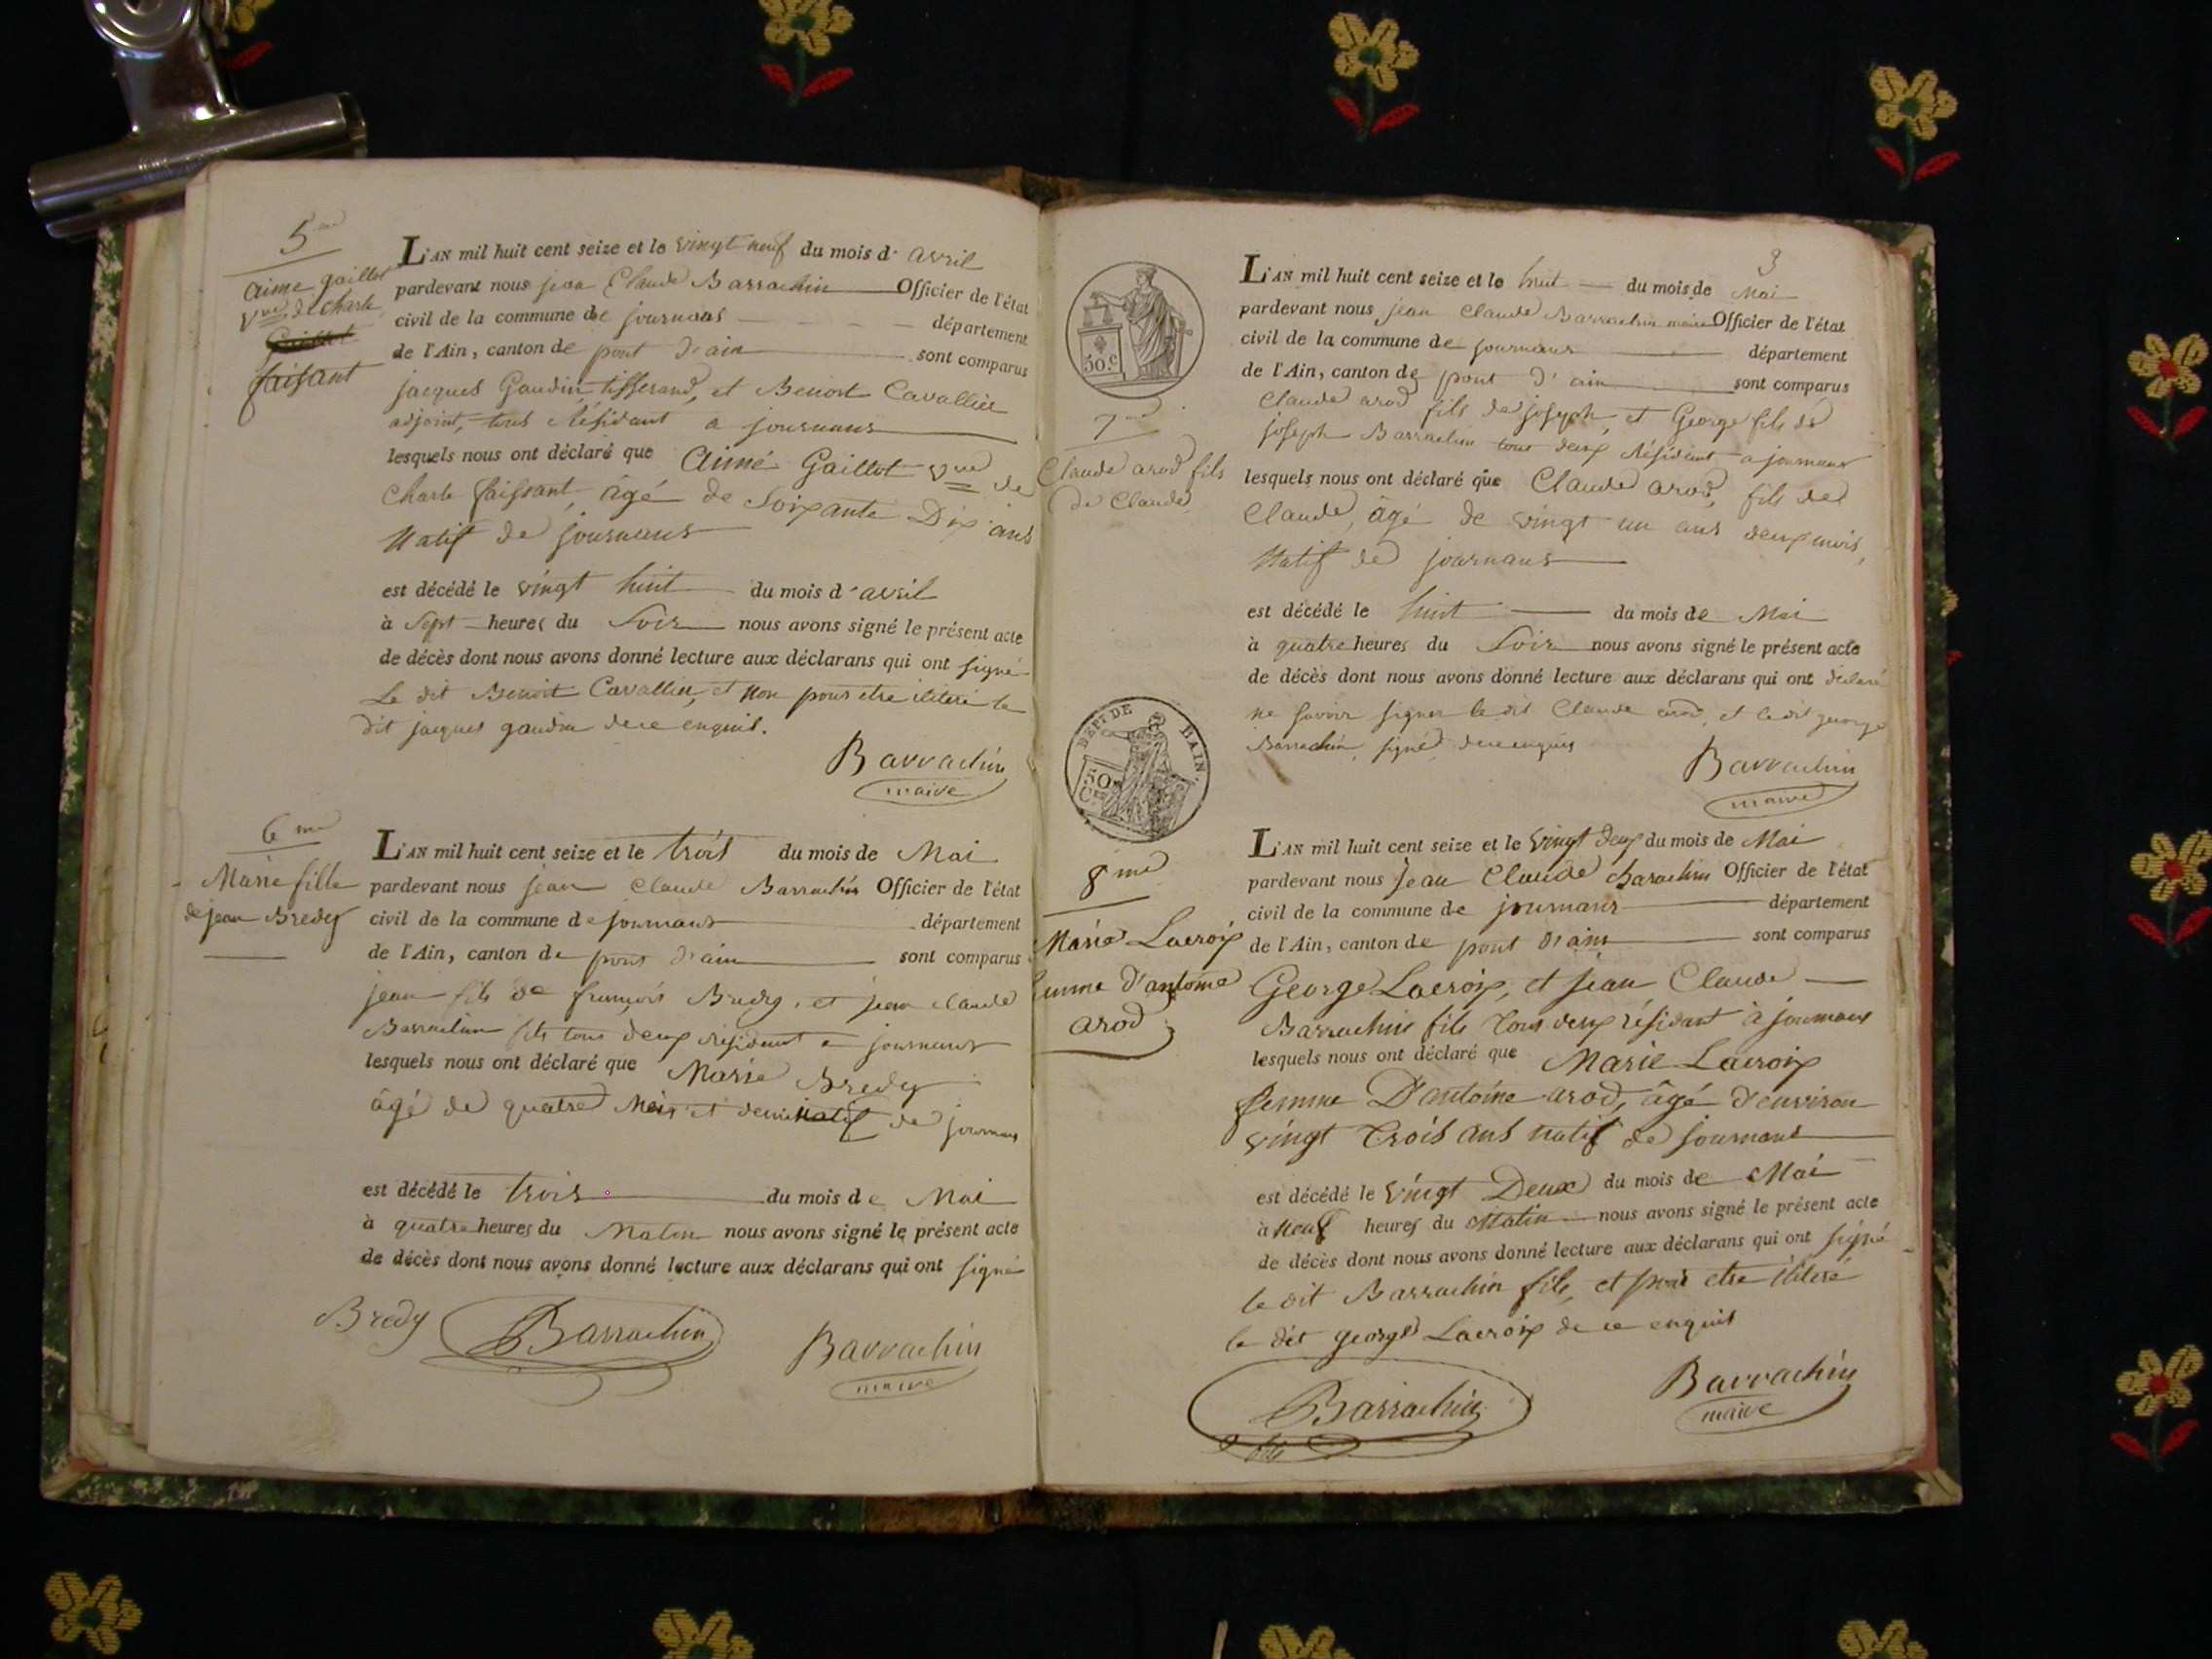 5me
aime gaillot
Vve de Charle
Gaillot
faissant
L'AN mil huit cent seize et le vingt neuf du mois d' avril
pardevant nous jean Claude Barrachin Officier de l'état
civil de la commune de journans département
de l'Ain, canton de pont d'ain sont comparus
jacques Gaudin tisserand, et Benoit Cavallier
adjoint, tous Résidant a journans
lesquels nous ont déclaré que Aimé Gaillot Vve de
Charle faissant, âgé de Soixante Dix ans
Natif de journans
est décédé le vingt huit du mois d'avril
à Sept heures du Soir nous avons signé le présent acte
de décès dont nous avons donné lecture aux déclarans qui ont signé
Le dit Benoit Cavallier, et non pour etre iliteré le
dit jacques gaudin de ce enquis.
Barrachin
maire
6me
Marie fille
de jean Bredy
L'AN mil huit cent seize et le trois du mois de Mai
pardevant nous jean Claude Barrachin Officier de l'état
civil de la commune de journans département
de l'Ain, canton de pont d'ain sont comparus
jean fils de françois Bredy, et jean claude
Barrachin fils tous deux résidant a journans
lesquels nous ont déclaré que Marie Bredy
âgé de quatre Mois et demi Natif de journans
est décédé le trois du mois de Mai
à quatre heures du Matin nous avons signé le présent acte
de décès dont nous avons donné lecture aux déclarans qui ont signé
Bredy Barrachin Barrachin
maire
3
50.c
7me
Claude arod fils
de Claude
L'AN mil huit cent seize et le huit du mois de Mai
pardevant nous jean Claude Barrachin maire Officier de l'état
civil de la commune de journans département
de l'Ain, canton de pont d'ain sont comparus
Claude arod fils de joseph, et George fils de
joseph Barrachin tous deux Résidant a journans
lesquels nous ont déclaré que Claude arod, fils de
Claude, âgé de vingt un ans deux mois,
Natif de journans
est décédé le huit du mois de Mai
à quatre heures du Soir nous avons signé le présent acte
de décès dont nous avons donné lecture aux déclarans qui ont déclaré
ne savoir signer le dit Claude arod, et le dit george
Barrachin, signé, de ce enquis
Barrachin
maire
DEPt DE BAIN.
50
Cen
8me
Marie Lacroix
femme d'antoine
arod
L'AN mil huit cent seize et le vingt deux du mois de Mai
pardevant nous Jean Claude Barachin Officier de l'état
civil de la commune de journans département
de l'Ain, canton de pont d'ain sont comparus
George Lacroix, et jean Claude
Barrachin fils tous deux résidant à journans
lesquels nous ont déclaré que Marie Lacroix
femme D'antoine arod, âgé d'environ
vingt trois ans natif de journans
est décédé le vingt Deux du mois de Mai
à neuf heures du Matin nous avons signé le présent acte
de décès dont nous avons donné lecture aux déclarans qui ont signé
le dit Barrachin fils, et pour etre iliteré
le dit george Lacroix de ce enquis
Barrachin
fils
Barrachin
maire